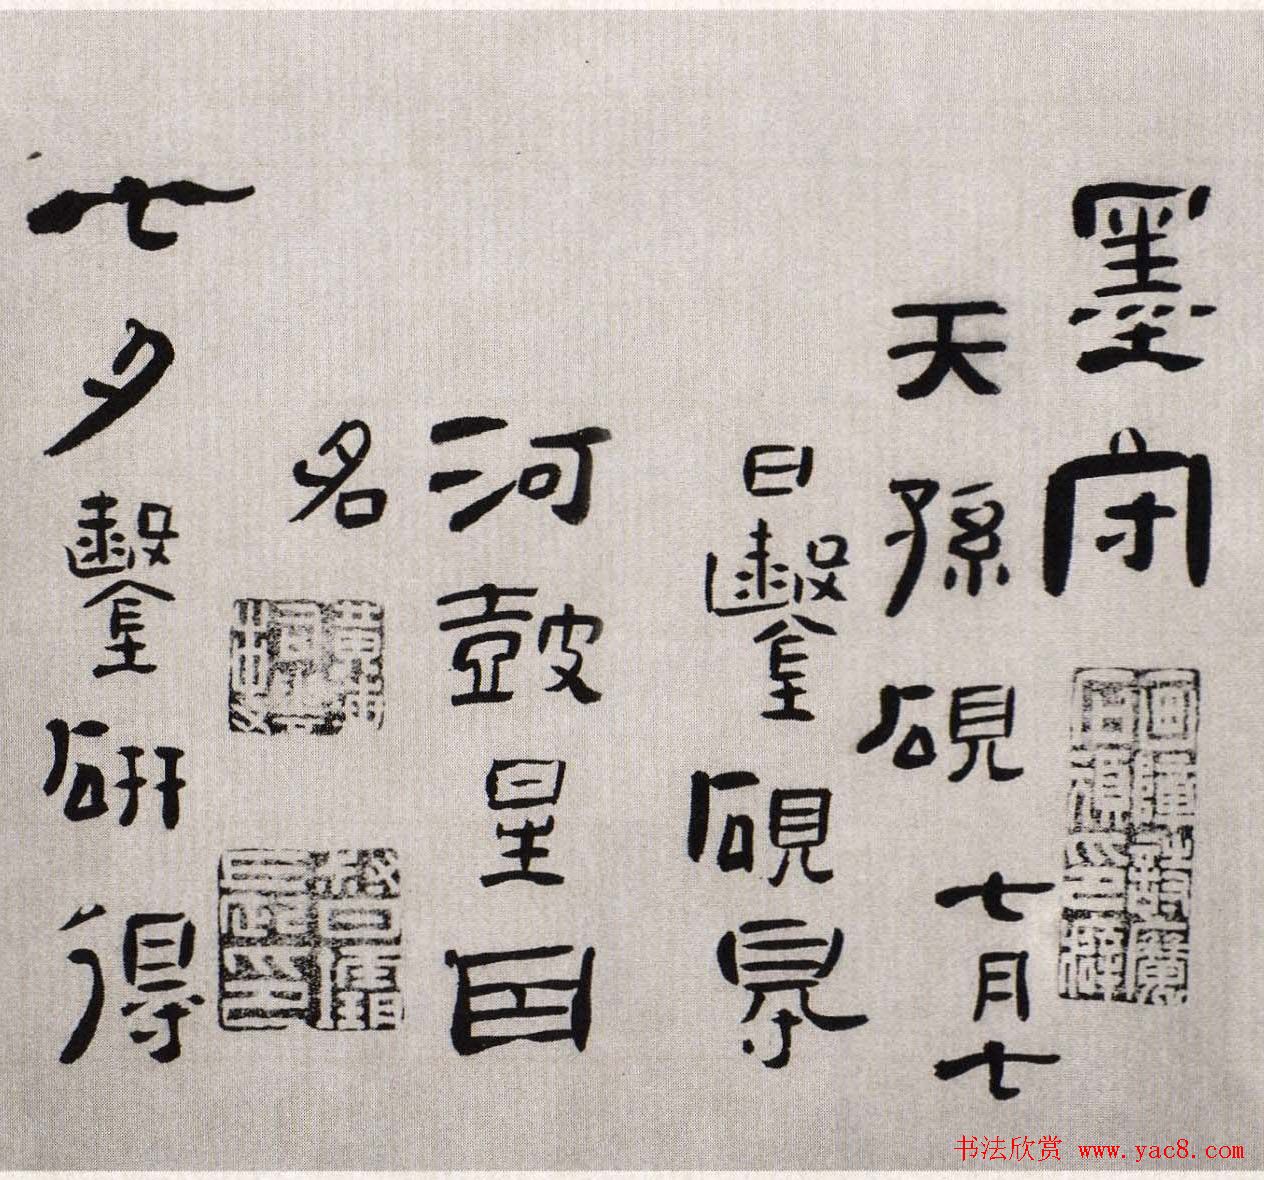 墨守
天孫硯七月七
日鑿硯
河鼓星囙
名
七夕鑿研得
书法欣赏 www.yac8.com